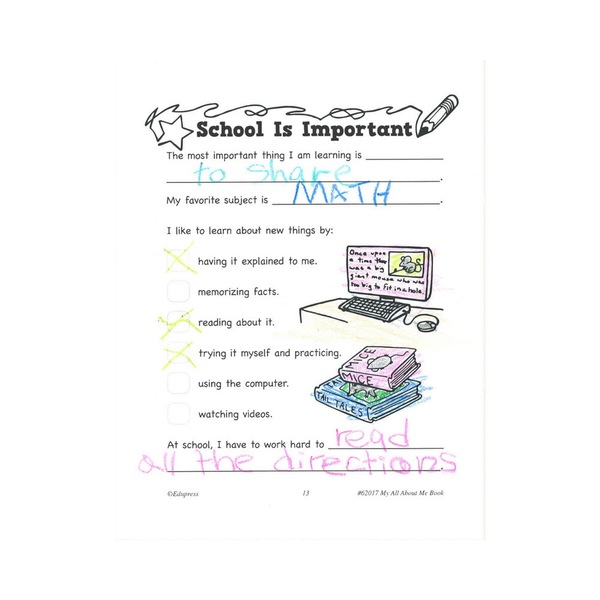 School Is Important
The most important thing I am learning is
to share.
My favorite subject is MATH.
I like to learn about new things by:
having it explained to me.
memorizing facts.
reading about it.
trying it myself and practicing.
using the computer.
watching videos.
Once upon
a time ther
was a big
giant mouse who was
too big to fit in a hole.
MICE
MICE
TAIL TALES
At school, I have to work hard to read
all the directions.
©Edupress
13
#62017 My All About Me Book